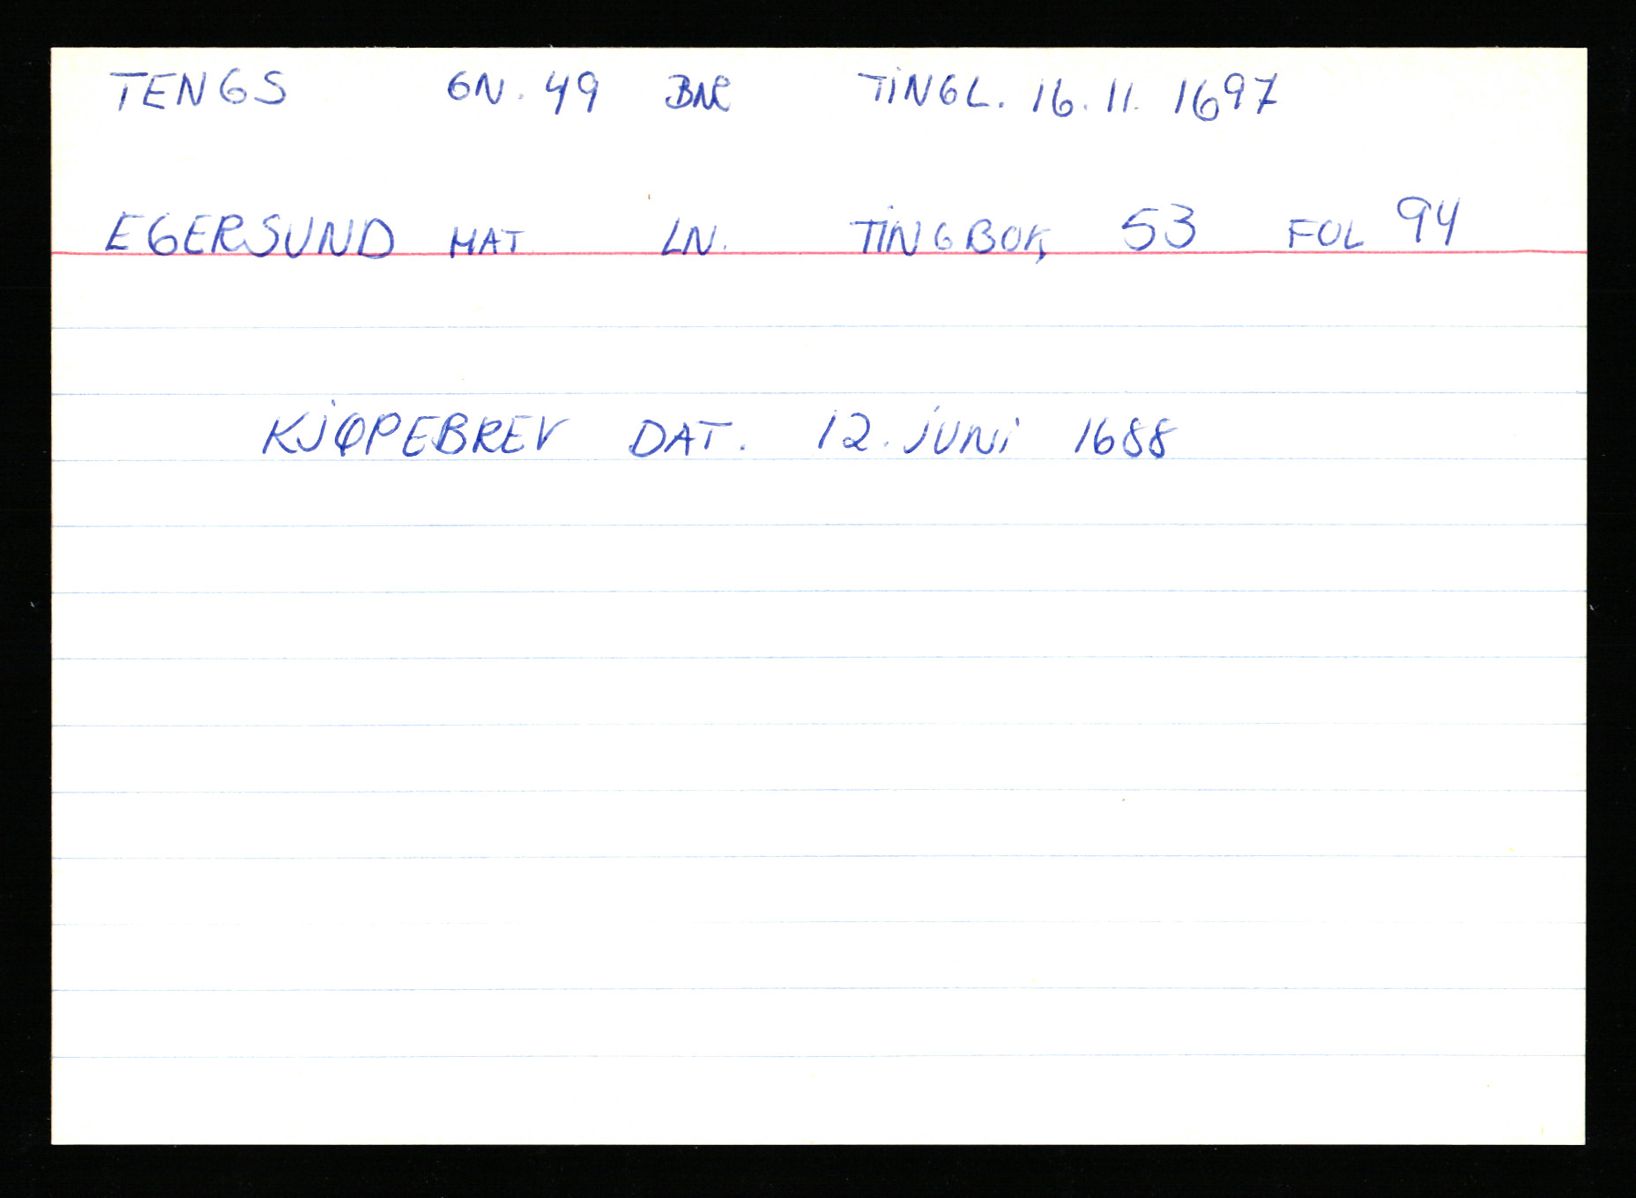 TENGS GN. 49 BNR TINGL. 16.11. 1697
EGERSUND MAT LN. TINGBOK 53 FOL 94
KJØPEBREV DAT. 12. JUNI 1688